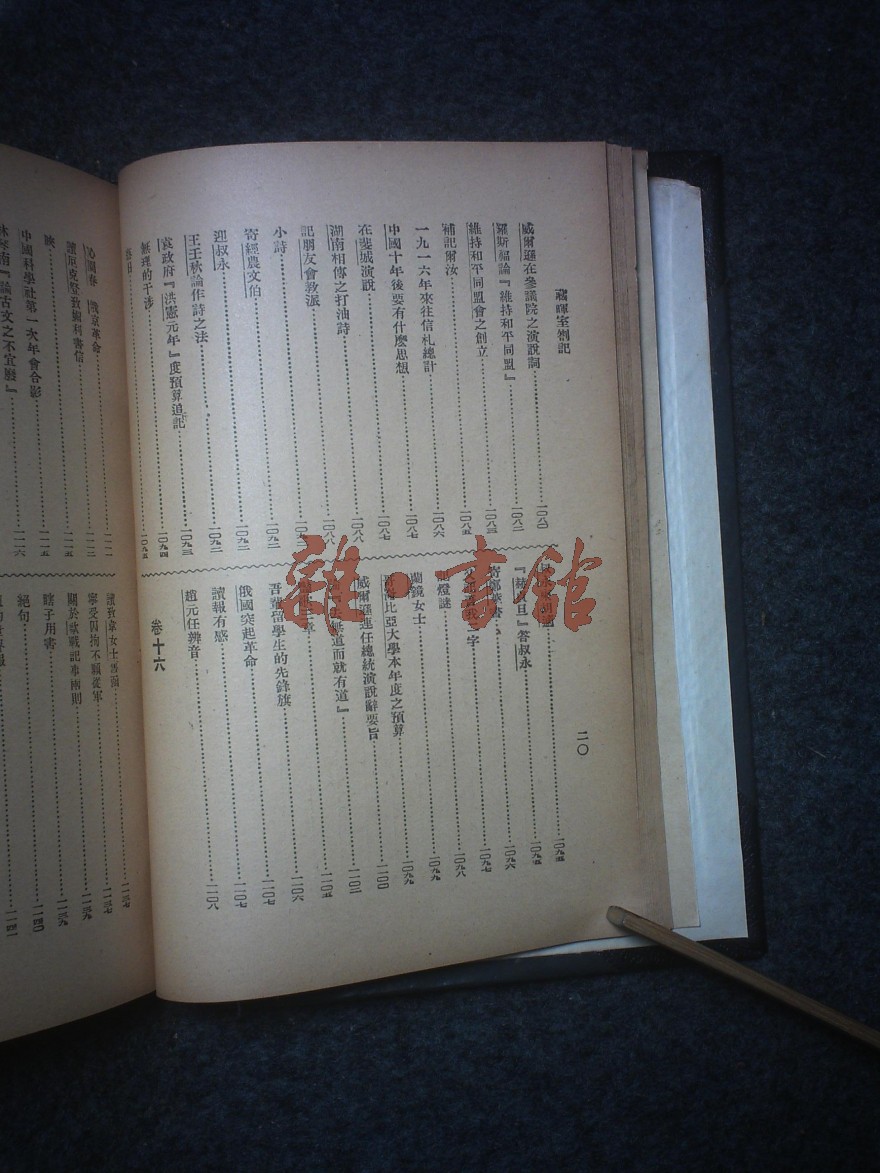 藏暉室劄記
威爾遜在參議院之演說詞……一〇八〇
羅斯福論『維持和平同盟』……一〇八二
維持和平同盟會之創立……一〇八三
補記爾汝……一〇八五
一九一六年來往信札總計……一〇八六
中國十年後要有什麼思想……一〇八七
在斐城演說……一〇八七
湖南相傳之打油詩……一〇八八
記朋友會教派……一〇八八
小詩
寄經農文伯……一〇九二
迎叔永……一〇九二
王壬秋論作詩之法……一〇九二
袁政府『洪憲元年』度預算追記……一〇九三
無理的干涉……一〇九四
一〇九五
二〇
一〇九五
答叔永……一〇九五
一〇九六
字……一〇九七
燈謎……一〇九八
蘭鏡女士……一〇九九
比亞大學本年度之預算……一〇九九
威爾遜連任總統演說辭要旨……一一〇〇
道而就有道』……一一〇二
一一〇五
吾輩留學生的先鋒旗……一一〇六
俄國突起革命……一一〇七
讀報有感……一一〇七
趙元任辨音……一一〇八
卷十六
沁園春 俄京革命
讀厄克登致媚利書信
中國科學社第一次年會合影……一一五
林琴南『論古文之不宜廢』……一一六
讀致韋女士舊函……一一三七
寧受囚拘不願從軍……一一三九
關於歐戰記事兩則……一一三九
瞎子用書……一一四〇
絕句……一一四一